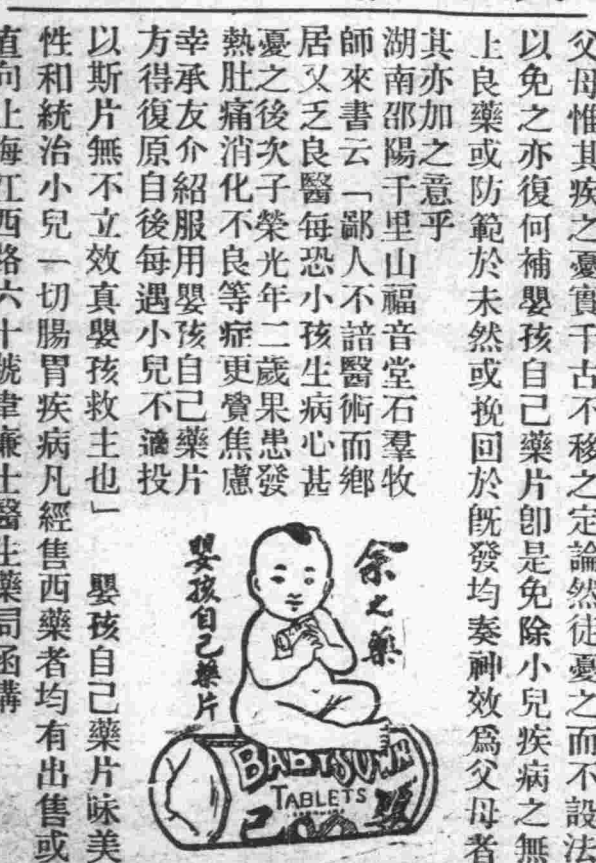 父母惟其疾之憂實千古不移之定論然徒憂之而不設法
以免之亦復何補嬰孩自己藥片卽是免除小兒疾病之無
上良藥或防範於未然或挽回於旣發均奏神效爲父母者
其亦加之意乎
湖南邵陽千里山福音堂石羣牧
師來書云「鄙人不諳醫術而鄉
居又乏良醫每恐小孩生病心甚
憂之後次子榮光年二歲果患發
熱肚痛消化不良等症更覺焦慮
幸承友介紹服用嬰孩自己藥片
方得復原自後每遇小兒不適投
以斯片無不立效眞嬰孩救主也」 嬰孩自己藥片味美
性和統治小兒一切腸胃疾病凡經售西藥者均有出售或
直向上海江西路六十號韋廉士醫生藥局函購
余之藥
嬰孩自己藥片
BABY'S OWN
TABLETS
己
嬰